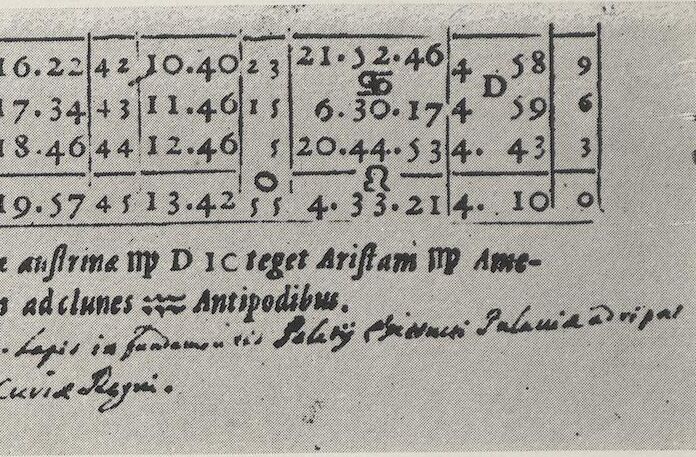 16.22 42 10.40 23 21.52.46 4 58 9
♋ D
17.34 43 11.46 15 6.30.17 4 59 6
18.46 44 12.46 5 20.44.53 4. 43 3
0 ♌
19.57 45 13.42 55 4.33.21 4. 10 0
austrinæ ♍ D IC teget Aristam ♍ Ame-
ad clunes ♒ Antipodibus.
Lapis in fundamentis Palatij
Regni.